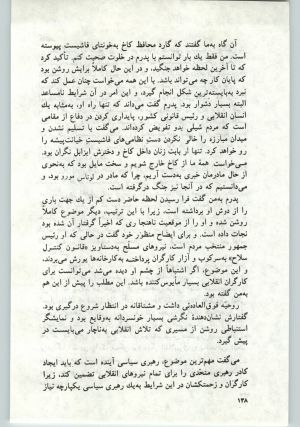 آن گاه به‌ما گفتند که گارد محافظ کاخ به‌خونتای فاشیست پیوسته
است. من فقط یك بار توانستم با پدرم در خلوت صحبت کنم. تأکید کرد
که تا آخرین لحظه خواهد جنگید، و در این حال کاملاً برایش روشن بود
که پایان کار چه می‌تواند باشد. با این همه می‌خواست چنان عمل کند که
نبرد به‌پایسته‌ترین شکل انجام گیرد، و این امر در آن شرایط نامساعد
البته بسیار دشوار بود. پدرم گفت می‌داند که تنها راه او، به‌مثابه یك
انسان انقلابی و رئیس قانونی کشور، پایداری کردن در دفاع از مقامی
است که مردم شیلی بدو تفویض کرده‌اند. می‌گفت با تسلیم نشدن و
میدان مبارزه را خالی نکردن دست نظامی‌های فاشیست خیانت‌پیشه را
رو خواهد کرد. تنها از بابت زنان داخل کاخ و دخترش ایزابل نگران بود.
می‌خواست همهٔ ما از کاخ خارج شویم و سخت مایل بود که به‌نحوی
از حال مادرمان خبری به‌دست آوریم، چرا که مادر در توماس مورو بود، و
می‌دانستیم که در آنجا نیز جنگ درگرفته است.
پدرم به‌من گفت فرا رسیدن لحظه حاضر دست کم از یك جهت باری
را از دوش او برداشته است، زیرا با این ترتیب، دیگر موضوع کاملاً
روشن شده و او را از موقعیت ناهنجاری که اخیراً گرفتار آن شده بود
نجات داده است. و برای ایضاح منظور خود گفت در حالی که او رئیس
جمهور منتخب مردم است، نیروهای مسلح به‌دستاویز «قانون کنترل
سلاح» به‌سرکوب و آزار کارگران پرداخته به‌کارخانه‌ها یورش می‌بردند،
و این موضوع، اگر اشتباهاً از چشم او دیده می‌شد می‌توانست برای
کارگران انقلابی بسیار مأیوس‌کننده باشد. این مطلب را پیش از این هم
به‌من گفته بود.
روحیه فوق‌العاده‌ئی داشت و مشتاقانه در انتظار شروع درگیری بود.
گفتارش نشان‌دهندهٔ نگرشی بسیار خونسردانه به‌وقایع بود و نمایشگر
استنباطی روشن از مسیری که تلاش انقلابی به‌ناچار می‌بایست در
پیش گیرد.
می‌گفت مهم‌ترین موضوع، رهبری سیاسی آینده است که باید ایجاد
کادر رهبری متحدی را برای تمام نیروهای انقلابی تضمین کند، زیرا
کارگران و زحمتکشان در این شرایط به‌یك رهبری سیاسی یکپارچه نیاز
۱۳۸